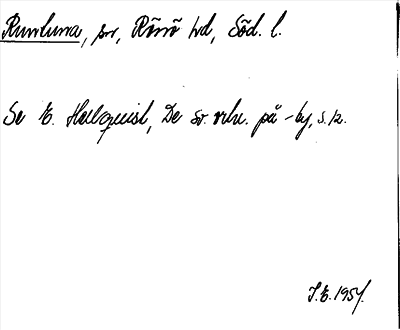 Runtuna, sn, Rönö hd, Söd. l.
Se E. Hellquist, De sv. ortn. på -by, s. 12.
J.E. 1954.